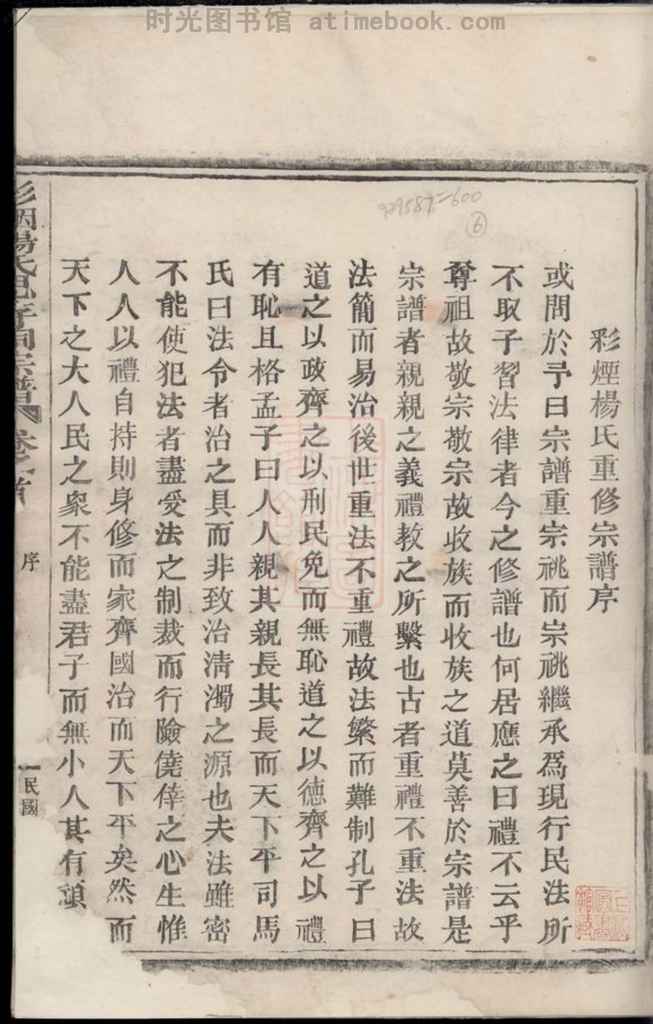 时光图书馆 atimebook.com
929587=600
⑥
彩煙楊氏重修宗譜序
或問於予曰宗譜重宗祧而宗祧繼承爲現行民法所
不取子習法律者今之修譜也何居應之曰禮不云乎
尊祖故敬宗敬宗故收族而收族之道莫善於宗譜是
宗譜者親親之義禮教之所繫也古者重禮不重法故
法簡而易治後世重法不重禮故法繁而難制孔子曰
道之以政齊之以刑民免而無恥道之以德齊之以禮
有恥且格孟子曰人人親其親長其長而天下平司馬
氏曰法令者治之具而非致治淸濁之源也夫法雖密
不能使犯法者盡受法之制裁而行險僥倖之心生惟
人人以禮自持則身修而家齊國治而天下平矣然而
天下之大人民之衆不能盡君子而無小人其有頑
序
民國